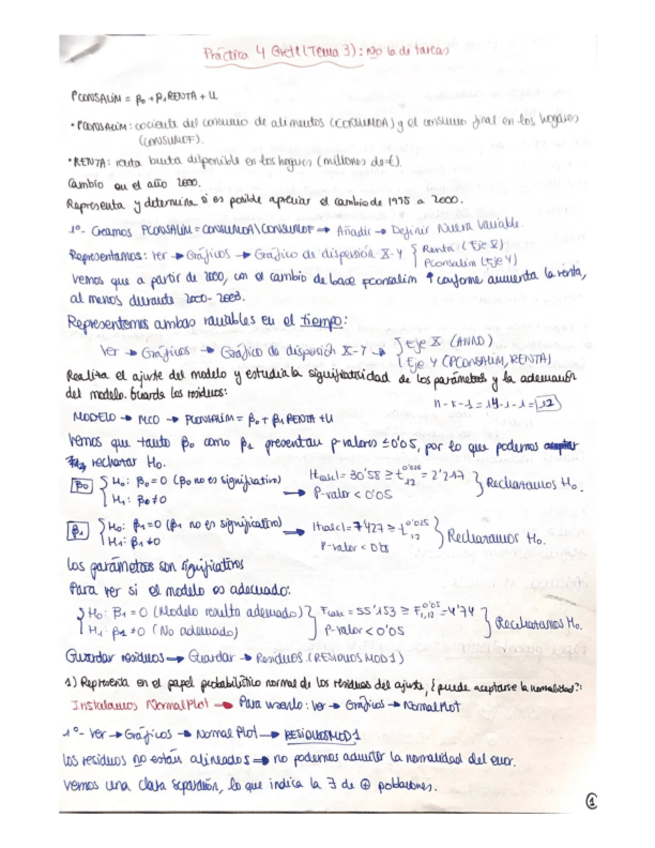 Práctica 4 Gretl (Tema 3): no la de tareas
PCONSALIM = β₀ + β₁RENTA + U
• PCONSALIM: cociente del consumo de alimentos (CONSUMOA) y el consumo final en los hogares
(CONSUMOF).
• RENTA: renta bruta disponible en los hogares (millones de €).
Cambio en el año 2000.
Representa y determina si es posible apreciar el cambio de 1995 a 2000.
1º- Creamos PCONSALIM = CONSUMOA\CONSUMOF → Añadir → Definir Nueva Variable.
Representamos: Ver → Gráficos → Gráfico de dispersión X-Y { Renta (Eje X)
Pconsalim (Eje Y)
Vemos que a partir de 2000, con el cambio de base pconsalim ↑ conforme aumenta la renta,
al menos durante 2000-2003.
Representemos ambas variables en el tiempo:
Ver → Gráficos → Gráfico de dispersión X-Y → { Eje X (ANNO)
Eje Y (PCONSALIM, RENTA)
Realiza el ajuste del modelo y estudia la significatividad de los parámetros y la adecuación
del modelo. Guarda los residuos:
n-k-1 = 14-1-1 = 12
MODELO → MCO → PCONSALIM = β₀ + β₁RENTA + U
Vemos que tanto β₀ como β₁ presentan p valores ≤ 0'05, por lo que podemos aceptar
rechazar H₀.
β₀ { H₀: β₀=0 (β₀ no es significativo) → |tcal| = 30'58 ≥ t₁₂^0'025 = 2'217 } Rechazamos H₀.
H₁: β₀≠0 P-valor < 0'05
β₁ { H₀: β₁=0 (β₁ no es significativo) → |tcal| = 7'427 ≥ t₁₂^0'025 } Rechazamos H₀.
H₁: β₁≠0 P-valor < 0'05
Los parámetros son significativos
Para ver si el modelo es adecuado:
{ H₀: β₁=0 (Modelo resulta adecuado) } Fcal = 55'153 ≥ F₁,₁₂^0'05 = 4'74 } Rechazamos H₀.
H₁: β₁≠0 (No adecuado) P-valor < 0'05
Guardar residuos → Guardar → Residuos (RESIDUOSMOD1)
1) Representa en el papel probabilístico normal de los residuos del ajuste, ¿puede aceptarse la normalidad?:
Instalamos NormalPlot → Para usarlo: Ver → Gráficos → NormalPlot
1º- Ver → Gráficos → Normal Plot → RESIDUOSMOD1
Los residuos no están alineados → no podemos admitir la normalidad del error.
Vemos una clara separación, lo que indica la ∃ de ⊕ poblaciones.
1